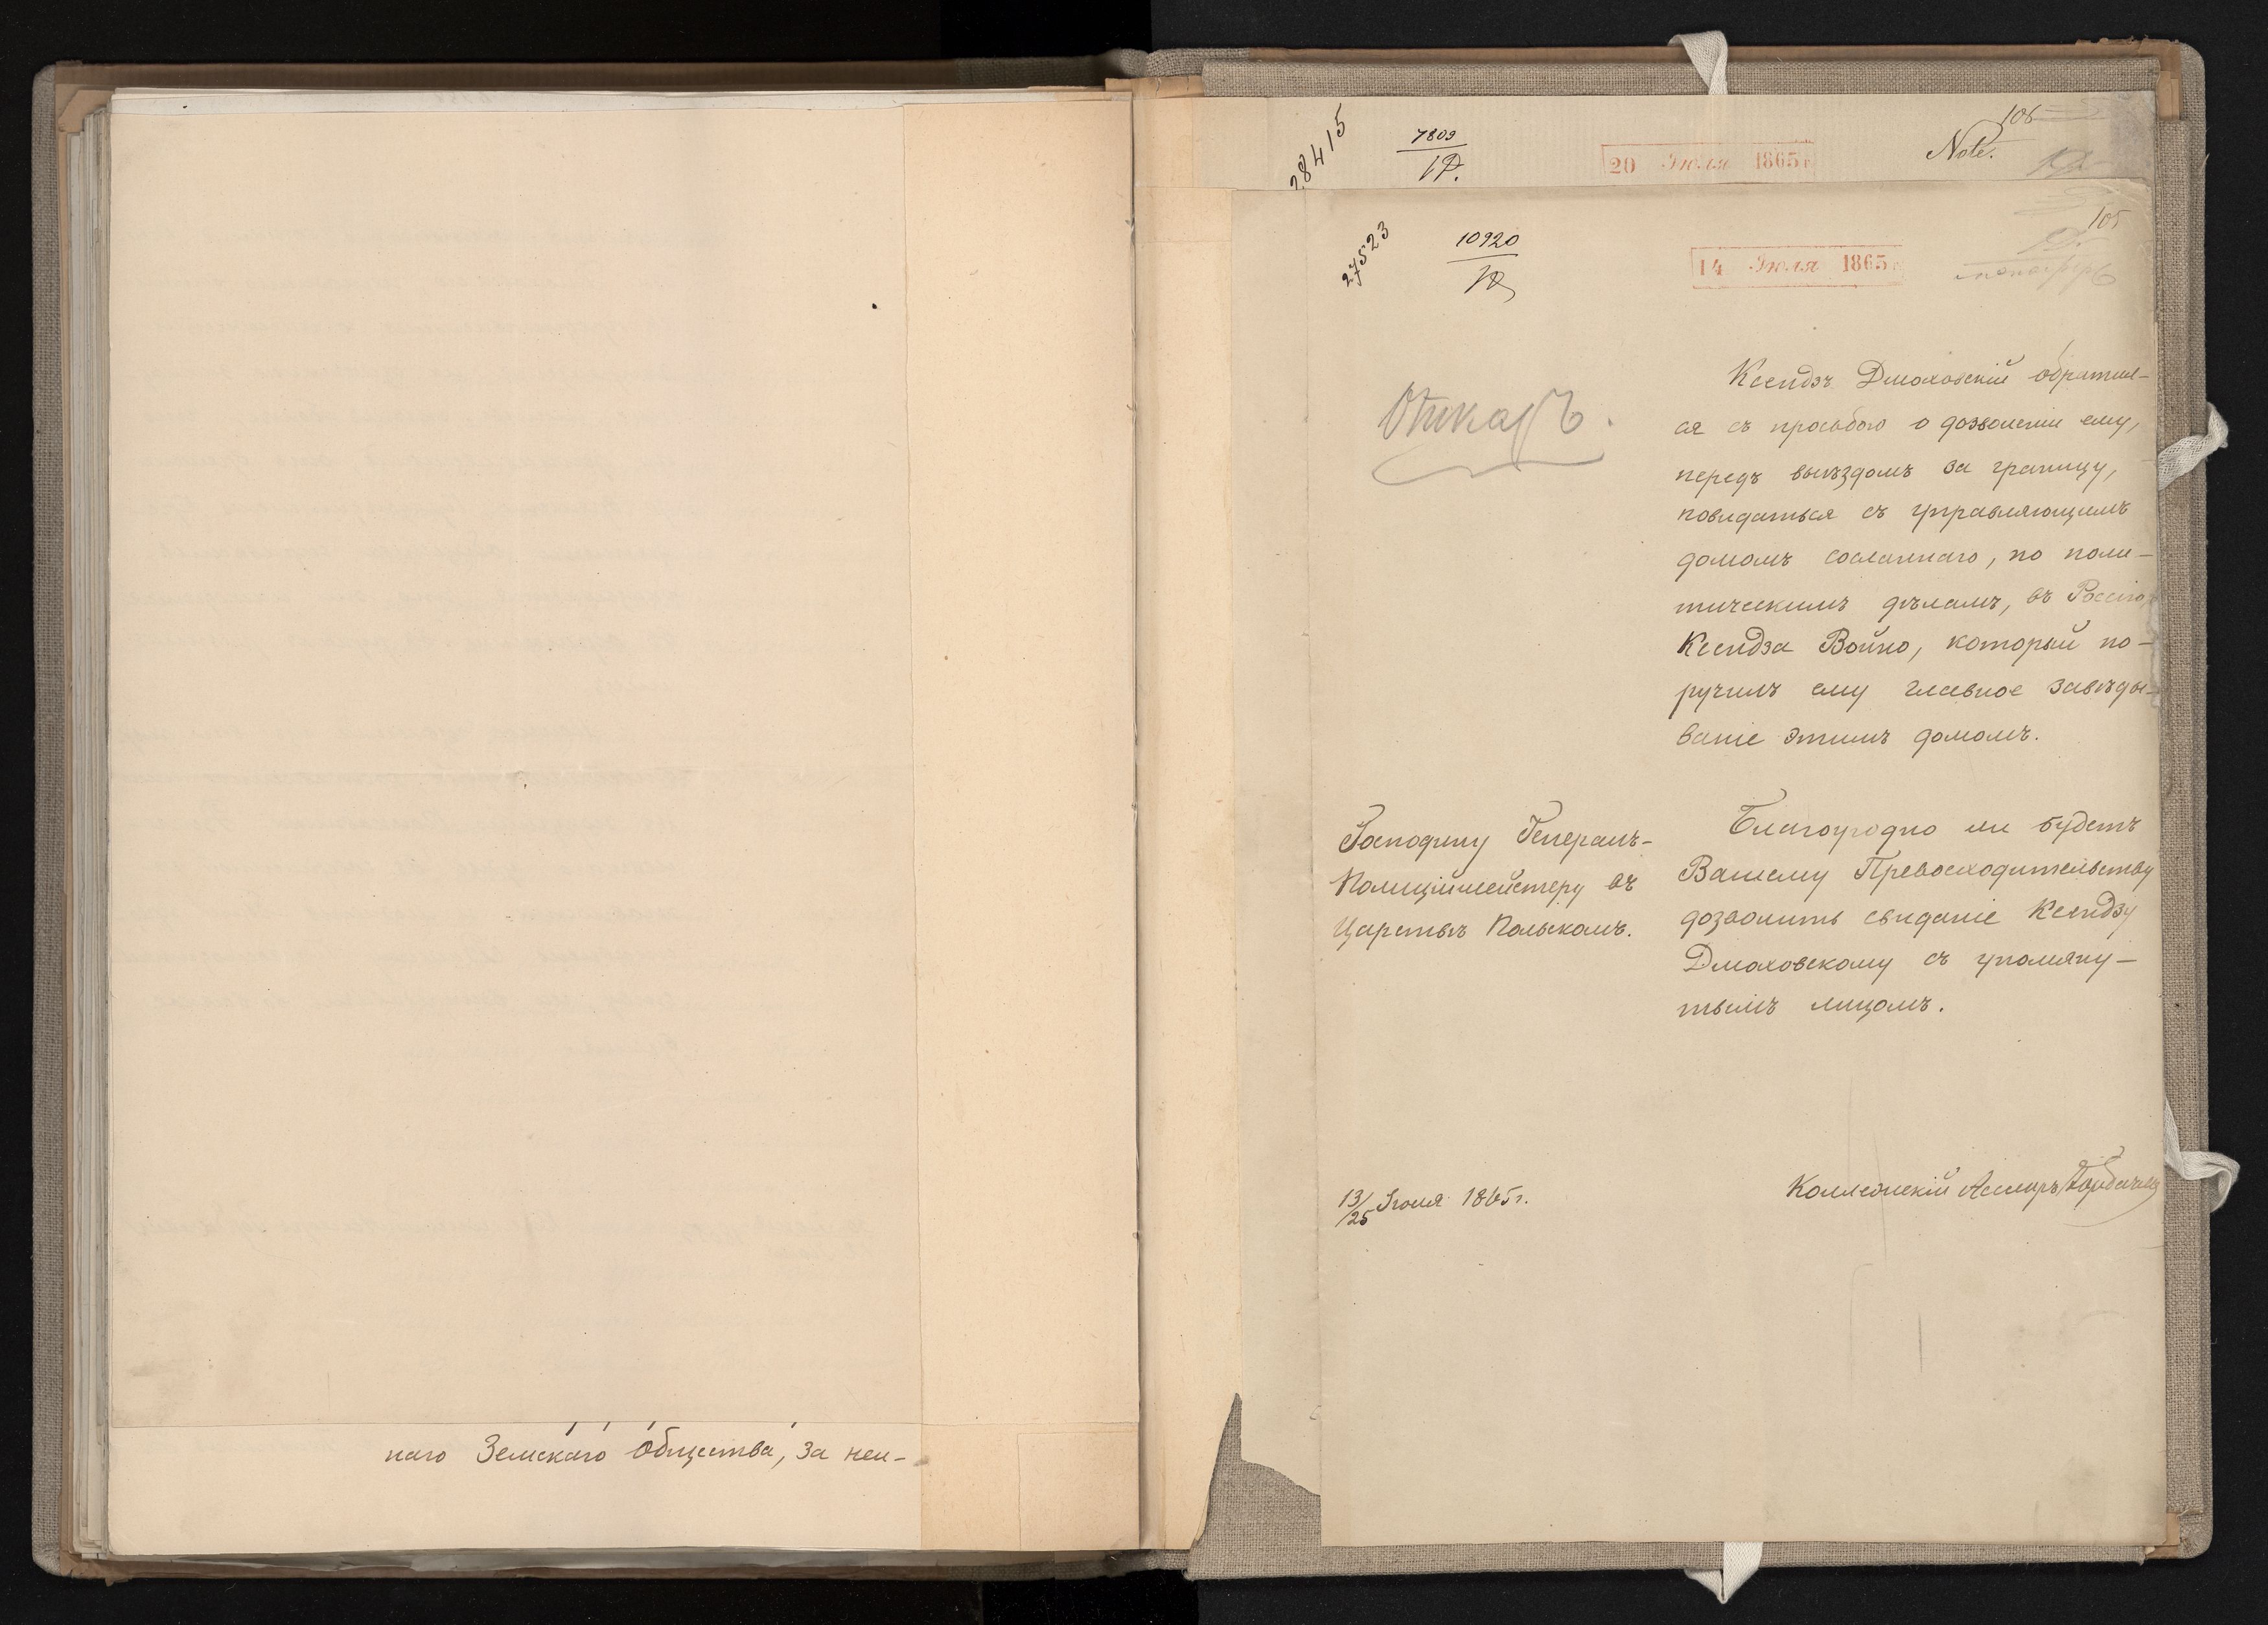 наго Земскаго Общества, за неи-
28415
7809
20 Июля 1865 г.
106
Note.
27523
10920
14 Июля 1865 г.
105
Отказъ.
Ксендзъ Дмоховскій обратил-
ся съ просьбою о дозволеніи ему,
передъ выѣздомъ за границу,
повидаться съ управляющимъ
домомъ сосланнаго, по поли-
тическимъ дѣламъ, въ Россію,
Ксендза Войно, который по-
ручилъ ему главное завѣды-
ваніе этимъ домомъ.
Господину Генералъ-
Полиціймейстеру въ
Царствѣ Польскомъ.
Благоугодно ли будетъ
Вашему Превосходительству
дозволить свиданіе Ксендзу
Дмоховскому съ упомяну-
тымъ лицомъ.
13/25 Іюля 1865 г.
Коллежскій Ассесоръ